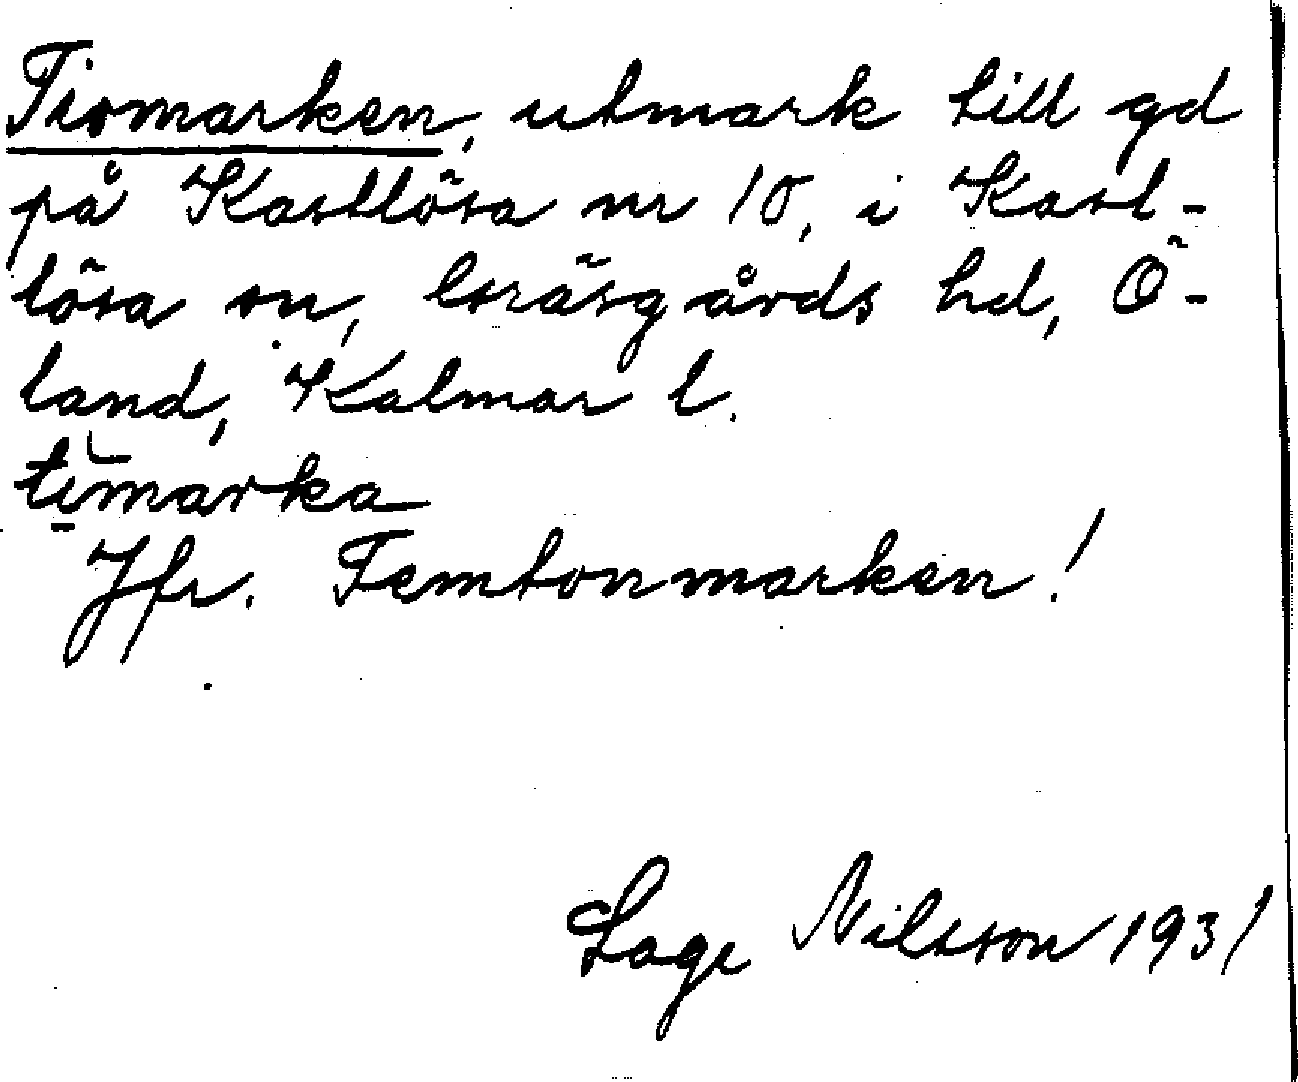 Tiomarken, utmark till gd
på Kastlösa nr 10, i Kast-
lösa sn, Gräsgårds hd, Ö-
land, Kalmar l.
timarka
Jfr. Femtonmarken!
Sage Nilsson 1931